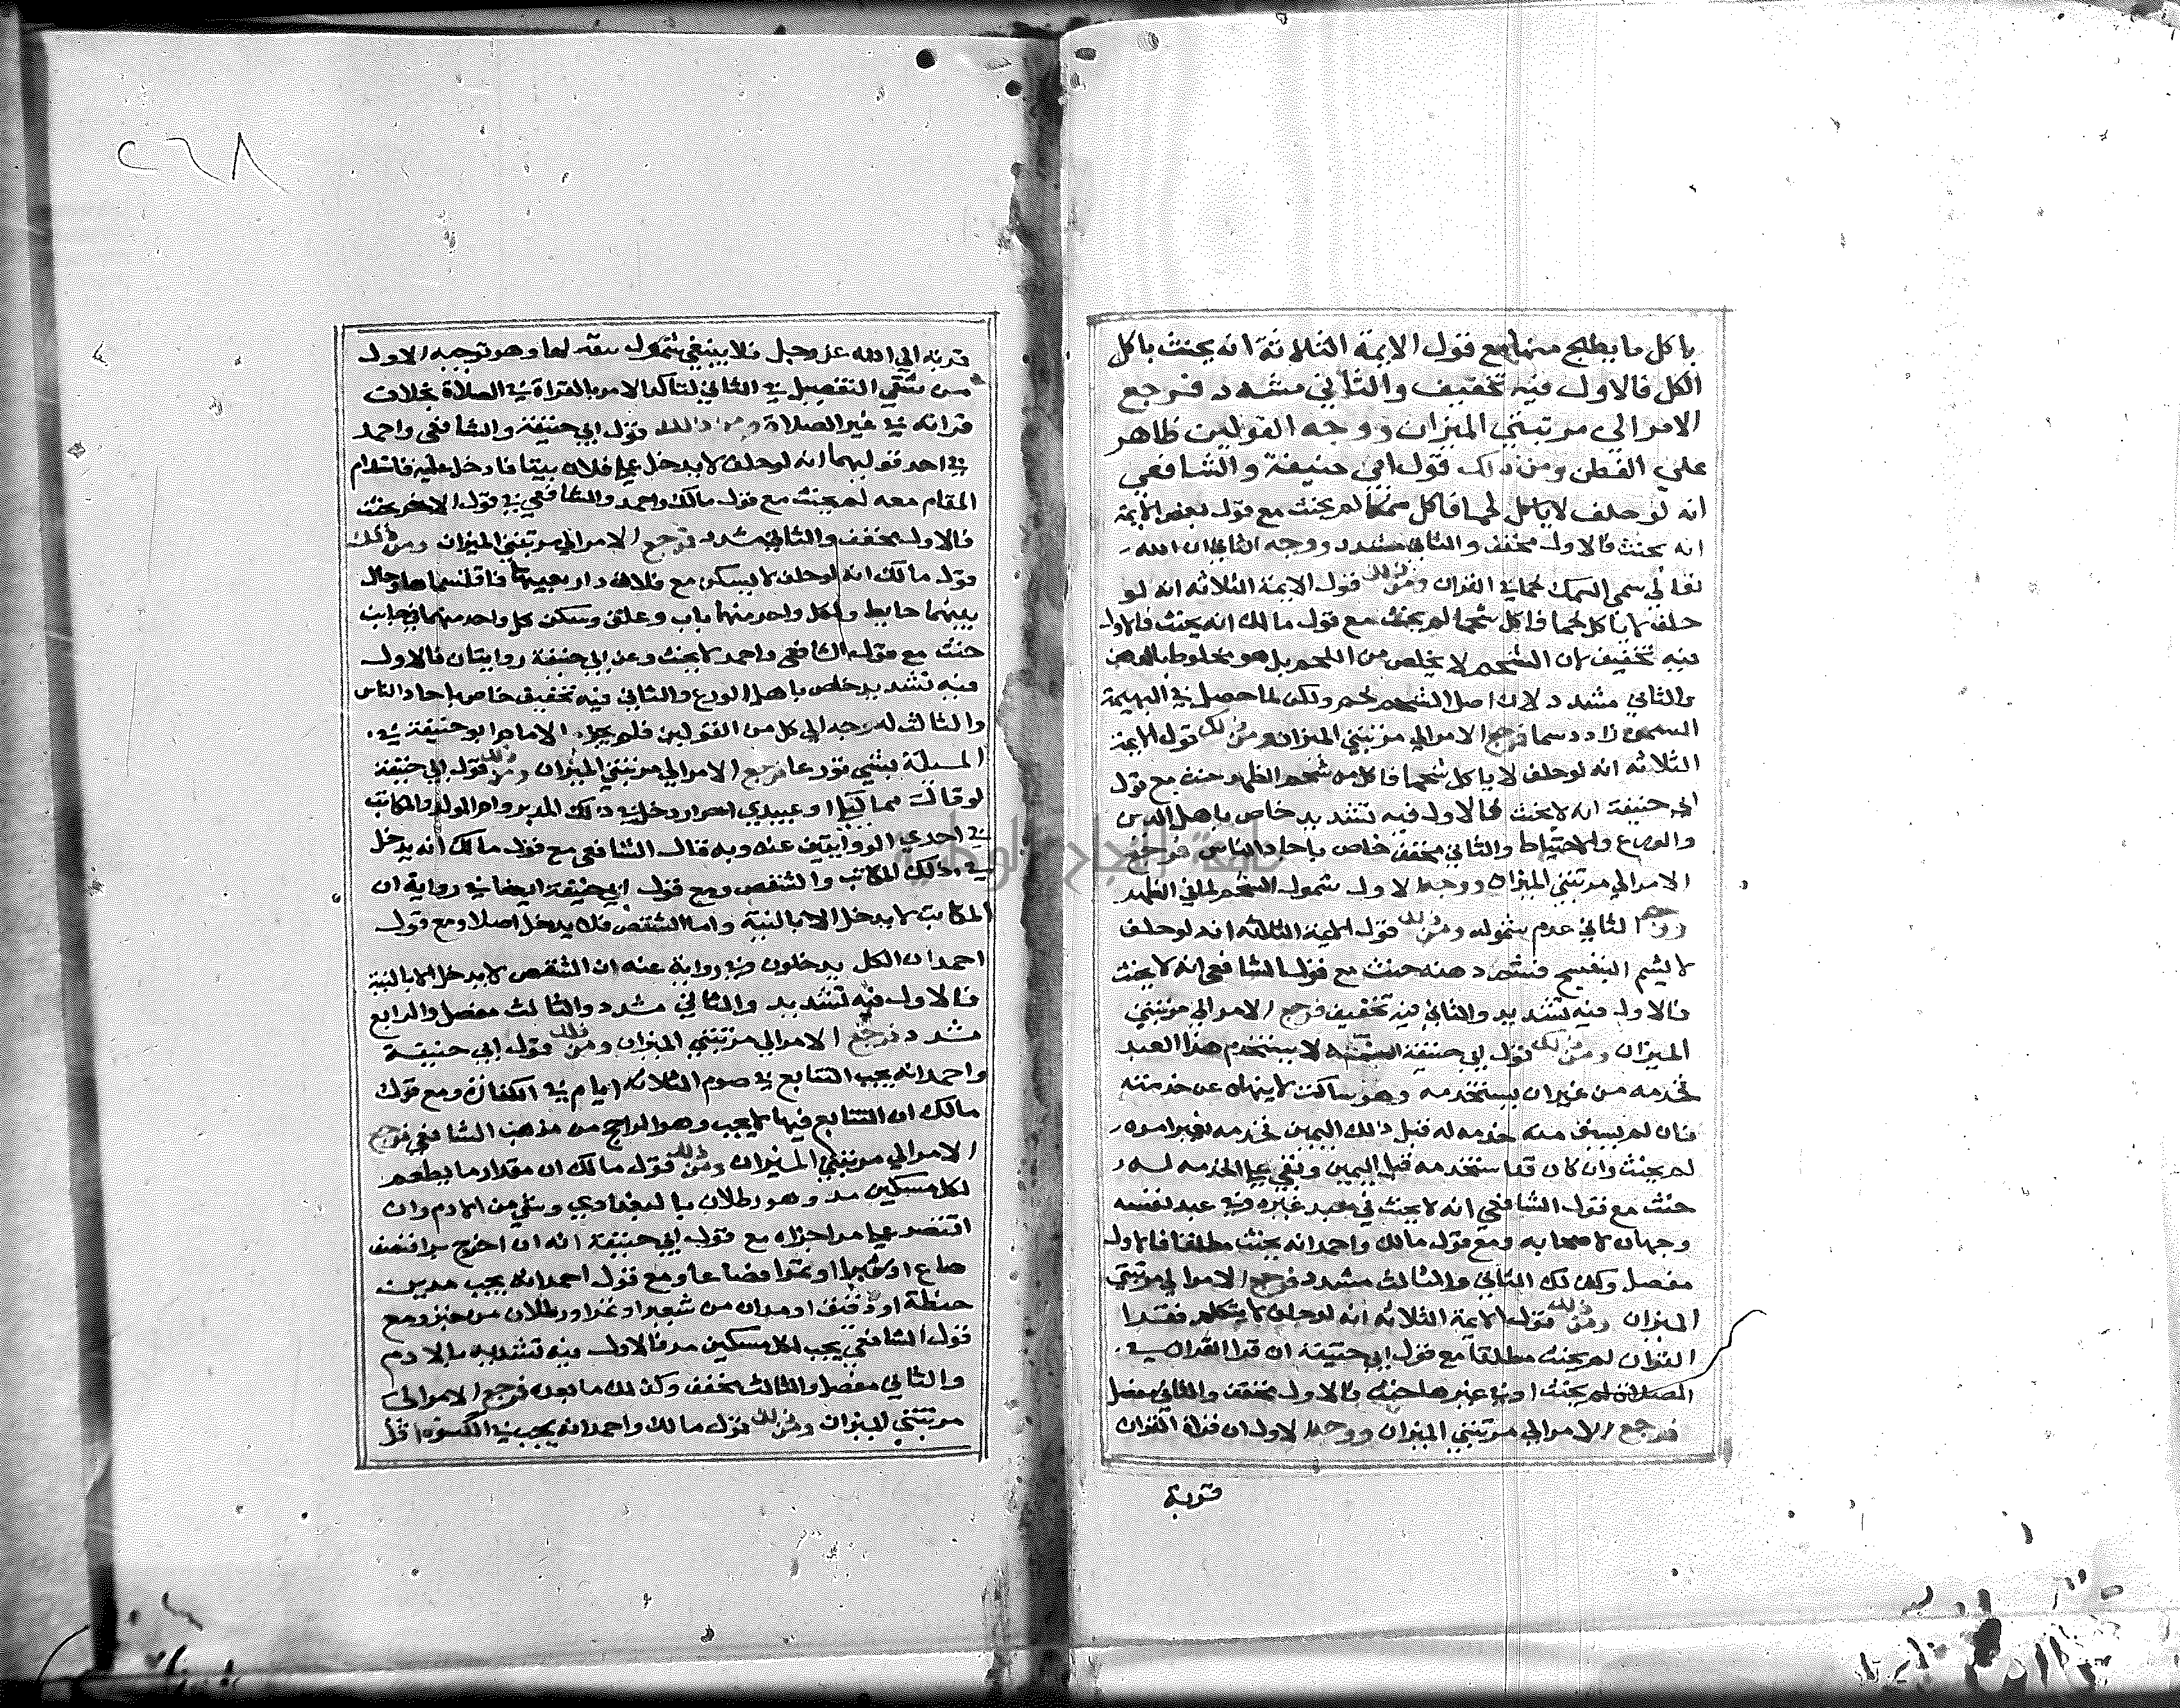 باكل ما يطبخ منها مع قول الايمة الثلاثة انه يحنث باكل
الكل فالاول فيه تخفيف والثاني مشدد فرجع
الامر الي مرتبتي الميزان ووجه القولين ظاهر
علي الفطن ومن ذلك قول ابي حنيفة والشافعي
انه لو حلف لا ياكل لحما فاكل سمكا لم يحنث مع قول بعض الايمة
انه يحنث فالاول مخفف والثاني مشدد ووجه الثاني ان الله
تعالي سمي السمك لحما في القران ومن ذلك قول الايمة الثلاثه انه لو
حلف لا ياكل لحما فاكل شحما لم يحنث مع قول مالك انه يحنث فالاول
فيه تخفيف لان الشحم لا يخلص من اللحم بل هو مخلوط بالدهن
والثاني مشدد لان اصل الشحم لحم ولكن لما حصل في البهيمة
السمن زاد دسما فرجع الامر الي مرتبتي الميزان ومن ذلك قول الايمة
الثلاثه انه لو حلف لا ياكل شحما فاكل من شحم الظهر حنث مع قول
ابي حنيفة انه لا يحنث فالاول فيه تشديد خاص باهل الدين
والورع والاحتياط والثاني مخفف خاص باحاد الناس فرجع
الامر الي مرتبتي الميزان ووجه الاول شمول الشحم لما في الظهر
ووجه الثاني عدم شموله ومن ذلك قول الايمة الثلاثه انه لو حلف
لا يشم البنفسج فشم دهنه حنث مع قول الشافعي انه لا يحنث
فالاول فيه تشديد والثاني فيه تخفيف فرجع الامر الي مرتبتي
الميزان ومن ذلك قول ابي حنيفة لا يستخدم هذا العبد
فخدمه من غير ان يستخدمه وهو ساكت لا ينهاه عن خدمته
فان لم يسبق منه خدمه له قبل ذلك اليمين فخدمه بغير امره
لم يحنث وان كان قد استخدمه قبل اليمين وبقي علي الخدمه له
حنث مع قول الشافعي انه لا يحنث في عبد غيره وفي عبد نفسه
وجهان لاصحابه ومع قول مالك واحمد انه يحنث مطلقا فالاول
مفصل وكذلك الثاني والثالث مشدد فرجع الامر الي مرتبتي
الميزان ومن ذلك قول الايمة الثلاثه انه لو حلف لا يتكلم فقرا
القران لم يحنث مطلقا مع قول ابي حنيفة ان قرا القران في
الصلاة لم يحنث او في غيرها حنث فالاول مخفف والثاني مفصل
فرجع الامر الي مرتبتي الميزان ووجه الاول ان قراة القران
قربة
٢٦٨
قربه الي الله عز وجل فلا ينبغي شمول له لها وهو توجيه الاول
من شقي التفصيل في الثاني لتاكد الامر بالقراة في الصلاة بخلاف
قراته في غير الصلاة ومن ذلك قول ابي حنيفة والشافعي واحمد
في احد قوليهما انه لو حلف لا يدخل علي فلان بيتا فادخل عليه فاستدام
المقام معه لم يحنث مع قول مالك واحمد والشافعي في قوله الاخر يحنث
فالاول مخفف والثاني مشدد فرجع الامر الي مرتبتي الميزان ومن ذلك
قول مالك انه لو حلف لا يسكن مع فلان دار بعينها فاقتسماها وجعل
بينهما حايط ولكل واحد منهما باب وغلق وسكن كل واحد منهما في جانب
حنث مع قول الشافعي واحمد لا يحنث وعن ابي حنيفة روايتان فالاول
فيه تشديد خاص باهل الورع والثاني فيه تخفيف خاص باحاد الناس
والثالث له وجه الي كل من القولين فلم يجزم الامام ابو حنيفة في
المسيلة بشي تورعا فرجع الامر الي مرتبتي الميزان ومن ذلك قول ابي حنيفة
لو قال مماليكي او عبيدي احرار دخل في ذلك المدبر وام الولد والمكاتب
في احدي الروايتين عنه وبه قال الشافعي مع قول مالك انه يدخل
في ذلك المكاتب والشقص ومع قول ابي حنيفة ايضا في رواية ان
المكاتب لا يدخل الا بالنية واما الشقص فلا يدخل اصلا ومع قول
احمد ان الكل يدخلون وفي رواية عنه ان الشقص لا يدخل الا بالنية
فالاول فيه تشديد والثاني مشدد والثالث مفصل والرابع
مشدد فرجع الامر الي مرتبتي الميزان ومن ذلك قول ابي حنيفة
واحمد انه يجب التتابع في صوم الثلاثه ايام في الكفارة ومع قول
مالك ان التتابع فيها لا يجب وهو الراجح من مذهب الشافعي فرجع
الامر الي مرتبتي الميزان ومن ذلك قول مالك ان مقدار ما يطعم
لكل مسكين مد وهو رطلان بالبغدادي وشي من الادم وان
اقتصر علي مد اجزاه مع قول ابي حنيفة انه ان اخرج برا فنصف
صاع او شعيرا او تمرا فصاعا ومع قول احمد انه يجب مد من
حنطة او دقيق او مدان من شعير او تمر او رطلان من خبز ومع
قول الشافعي يجب لكل مسكين مد فالاول فيه تشديد بالادم
والثاني مفصل والثالث مخفف وكذلك ما بعده فرجع الامر الي
مرتبتي الميزان ومن ذلك قول مالك واحمد انه يجب في الكسوة اقل